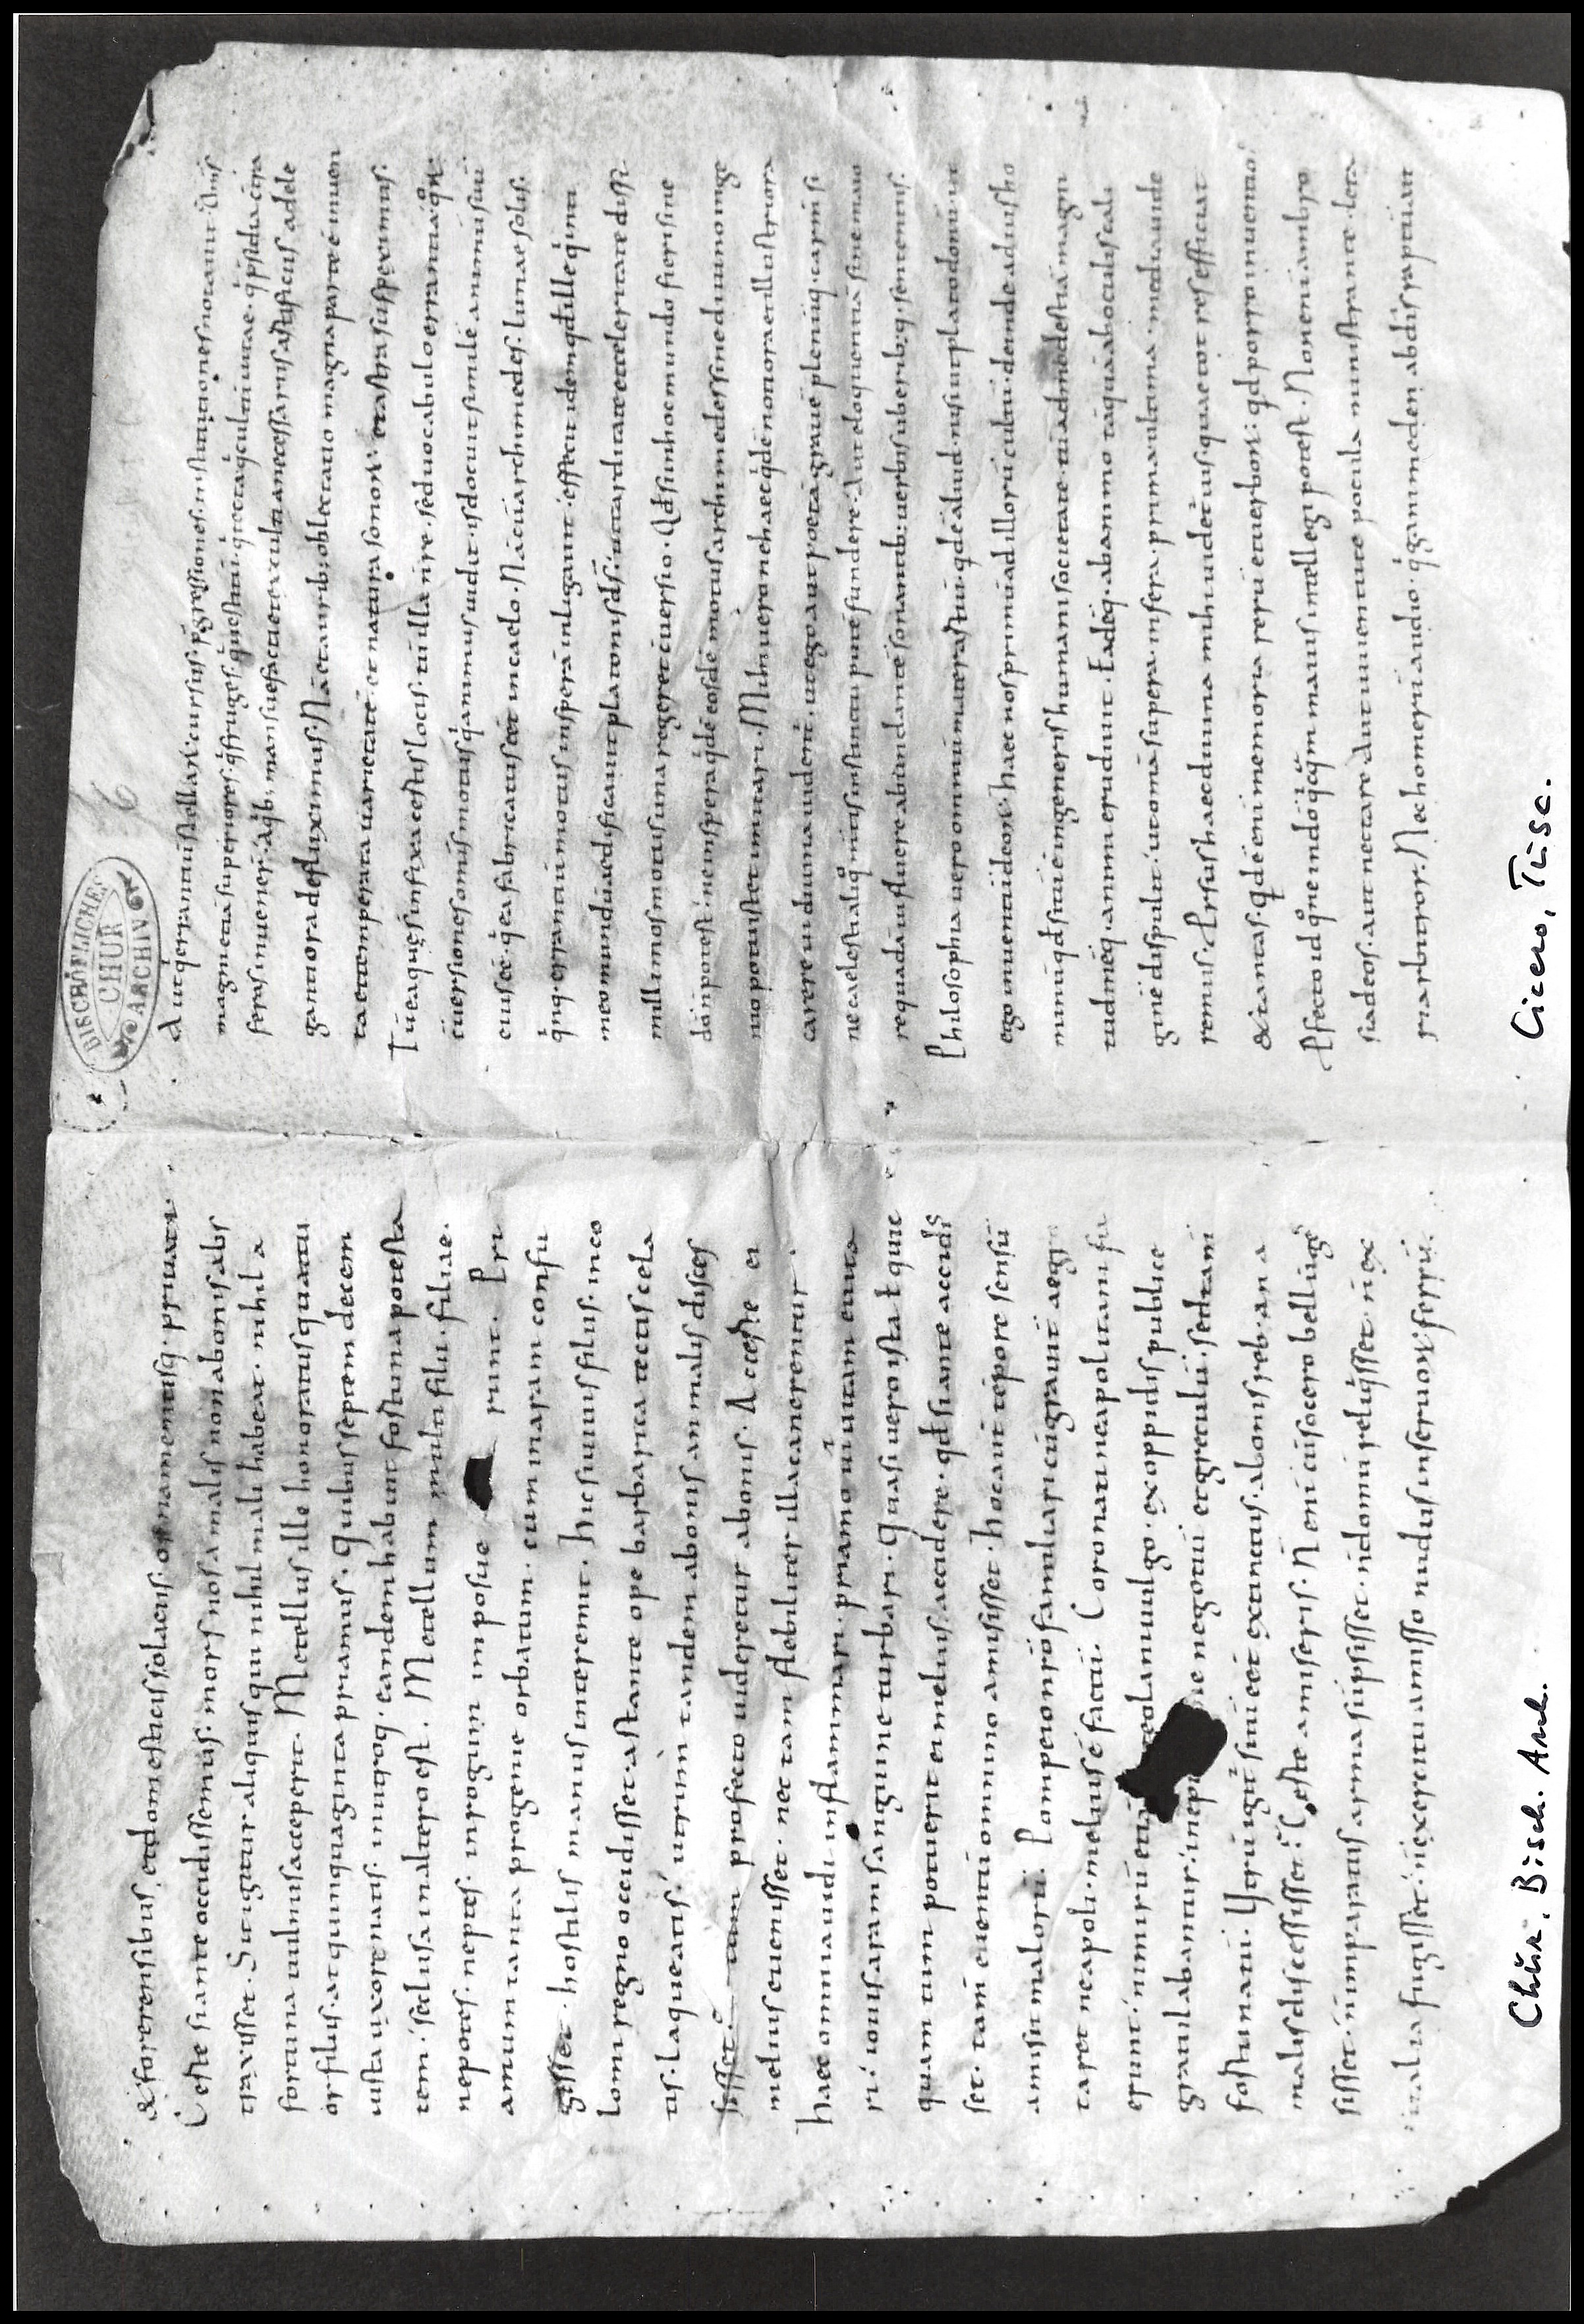 & forerensibus, et domesticis solaciis. ornamentisq. privavit.
Certe si ante occidissemus: mors nos a malis non a bonis abs
traxisset. Sit igitur aliquis qui nihil mali habeat. nihil a
fortuna vulnus acceperit. Metellus ille honoratis quattu
or filiis. at quinquaginta priamus. Quibus septem decem
iusta uxore natis. in utroq. eandem habuit fortuna potesta
tem. sed usa in altero est. Metellum multi filii. filiae.
nepotes. neptes. in rogum imposue runt. Pri
amum tanta progenie orbatum. cum in aram confu
gisset. hostilis manus interemit. Hic si vivis filiis. inco
lomi regno occidisset. astante ope barbarica tectis cela
tis. laqueatis. utrum tandem a bonis an malis disces
sisset. tum profecto videretur a bonis. At certe ei
melius evenisset. nec tam flebiliter illa canerentur.
haec omnia vidi inflammari. priamo vi vitam evita
ri. iovis aram sanguine turbari. Quasi vero ista t quic
quam tum potuerit ei melius accidere. qd si ante accidis
set. tam eventum omnino amisisset. Hoc aut tepore sensu
amisit malorum. Pompeio nro familiari cu graviter aegro
taret neapoli. melius e factu. Coronati neapolitani fu
erunt. nimiru etia puteolani vulgo ex oppidis publice
gratulabantur. ineptu sane negotiu et greculu. sed tam
fortunatu. Utru igit si tu eet extinctus. a bonis reb. an a
malis discessisset. Certe a miseris. N eni cu socero bellu ges
sisset. n imparatus arma supsisset. n domu reliqsset. n ex
italia fugisset. n exercitu amisso nudus in servor ferru.
DISCHÖFLICHES
CHUR
ARCHIV
6
Aut q errantiu stellar. cursus. pgressiones. institutiones notavit. Omis
magni etia superiores. q fruges. q vestitu. q tecta. q cultu vitae. q psidia ctra
feras invener. A qb. mansuefacti et exculti a necessariis artificiis ad ele
gantiora defluximus. Na et auribus oblectatio magna parte e inven
ta et temperata varietate et natura sonor. et astra suspeximus.
Tu ea que s infixa certis locis. tu illa n re sed vocabulo errantia. qr
cuersiones omisq motus q animus vidit. is docuit simile animu suu
eius ee. q ea fabricatus eet in caelo. Na cu archimedes. lunae solis.
qnq. errantiu motus in spera inligavit. effecit idem qd ille q in ti
meo mundu aedificavit platonis ds. ut tarditate et celeritate dissi
millimos motus una regeret cversio. Qd si in hoc mundo fieri sine
do n potest. ne in spera qde eosde motus archimedes sine divino inge
nio potuisset imitari. Mihi vero ne haec qde notiora et illustriora
carere vi divina videnr. ut ego aut poeta grave plenuq. carm si
ne caelesti aliq mtis instinctu pute fundere. Aut eloquentia sine maio
re quada vi fluere abundante sonantib. verbis uberibq. sententiis.
Philosophia vero omnium mater artiu. qd e aliud. nisi ut plato donu. ut
ego inventu deor. haec nos primu ad illoru cultu. deinde ad ius ho
minu qd situ e in generis humani societate. tu ad modestia magni
tudineq. animi erudivit. Eadeq. ab animo taqua ab oculis cali
gine dispulit. ut omia supera. infera. prima. ultima. media vide
remus. Prsus haec divina mihi videt vis. quae tot res efficiat
& tantas. qd e eni memoria reru et verbor: qd porro inventio?
Pfecto id q ne in do qcqm maius intellegi potest. Non eni ambro
sia deos. aut nectare aut iuventute pocula ministrante. leta
ri arbitror. Nec homeru audio. q ganimeden ab dis raptu ait
Chur, Bisch. Arch.
Cicero, Tusc.